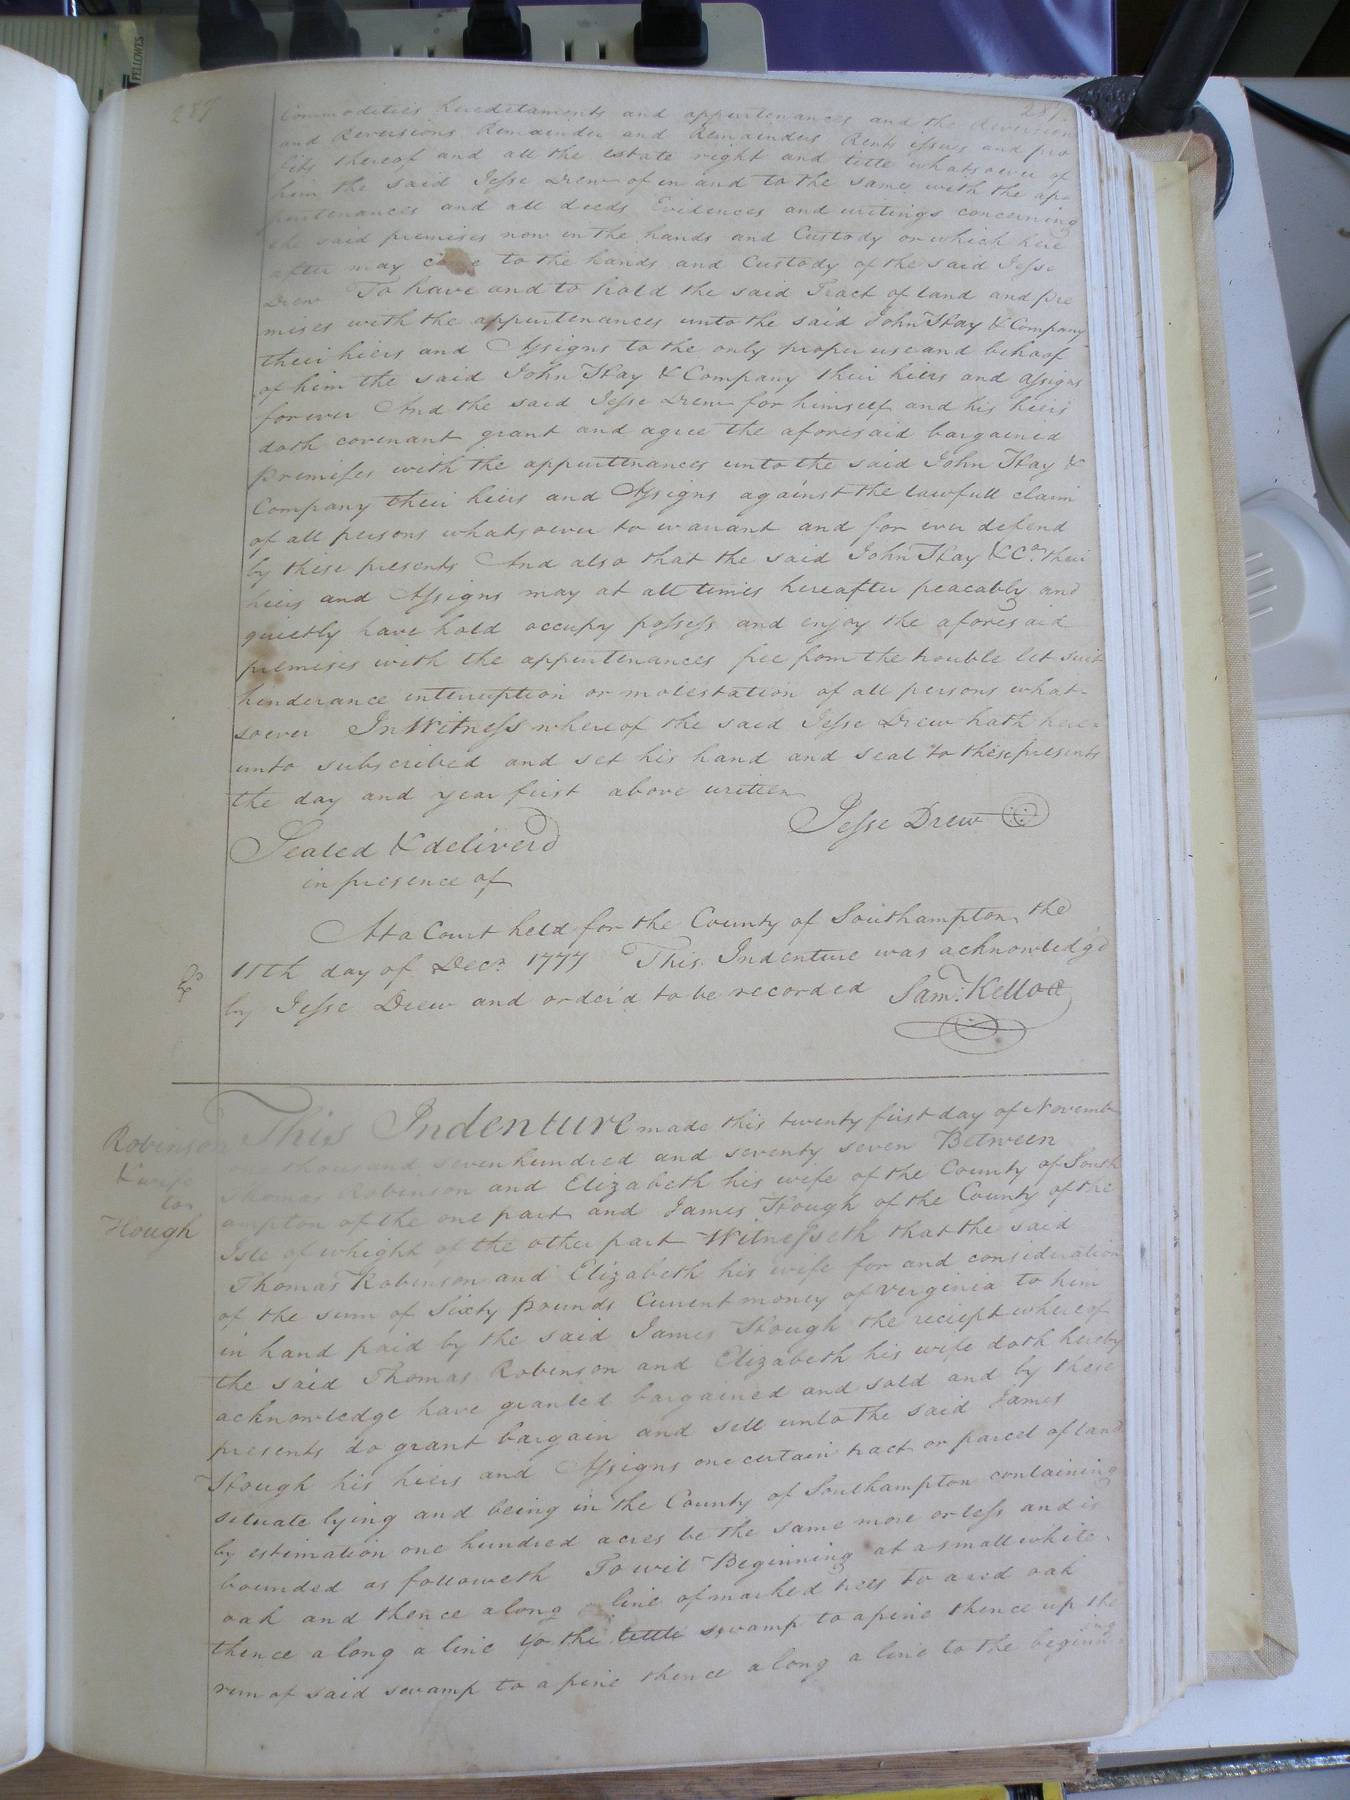 287
287
Commodities heredetaments and appurtenances and the deversion
and Reversions Remainder and Remainders Rents issues and pro
fits thereof and all the estate right and title whatsoever of
him the said Jesse Drew of in and to the same with the ap=
purtenances and all deeds Evidences and writings concerning
the said premises now in the hands and Custody or which here
after may come to the hands and Custody of the said Jesse
Drew To have and to hold the said Tract of land and pre
mises with the appurtenances unto the said John Hay & Company
their hiers and Assigns to the only proper use and behoof
of him the said John Hay & Company their hiers and assigns
for ever And the said Jesse Drew for himself and his hiers
doth covenant grant and agree the aforesaid bargained
premises with the appurtenances unto the said John Hay &
Company their hiers and Assigns against the lawfull claim
of all persons whatsoever to warrant and for ever defend
by these presents And also that the said John Hay & Co. their
hiers and Assigns may at all times hereafter peacably and
quietly have hold occupy possess and enjoy the aforesaid
premises with the appurtenances free from the trouble let suit
henderance interruption or molestation of all persons what-
soever In Witness whereof the said Jesse Drew hath here
unto subscribed and set his hand and seal to these presents
the day and year first above written
Jesse Drew
Sealed & deliverd
in presence of
At a Court held for the County of Southampton the
11th day of Decr. 1777 This Indenture was acknowledg'd
by Jesse Drew and order'd to be recorded Sam: Kelloe
Robinson
& wife
to
Hough
This Indenture made this twenty first day of Novemb
thousand seven hundred and seventy seven Between
Thomas Robinson and Elizabeth his wife of the County of South
ampton of the one part and James Hough of the County of the
Isle of whight of the other part Witnesseth that the said
Thomas Robinson and Elizabeth his wife for and consideration
of the sum of Sixty pounds Current money of Verginia to him
in hand paid by the said James Hough the reciept whereof
the said Thomas Robinson and Elizabeth his wife doth hereby
acknowledge have granted bargained and sold and by these
presents do grant bargain and sell unto the said James
Hough his hiers and Assigns one certain tract or parcel of land
situate lying and being in the County of Southampton containing
by estimation one hundred acres be the same more or less and is
bounded as followeth To wit Beginning at a small white
oak and thence along a line of marked trees to a red oak
thence along a line to the little swamp to a pine thence up the
run of said swamp to a pine thence along a line to the beginning